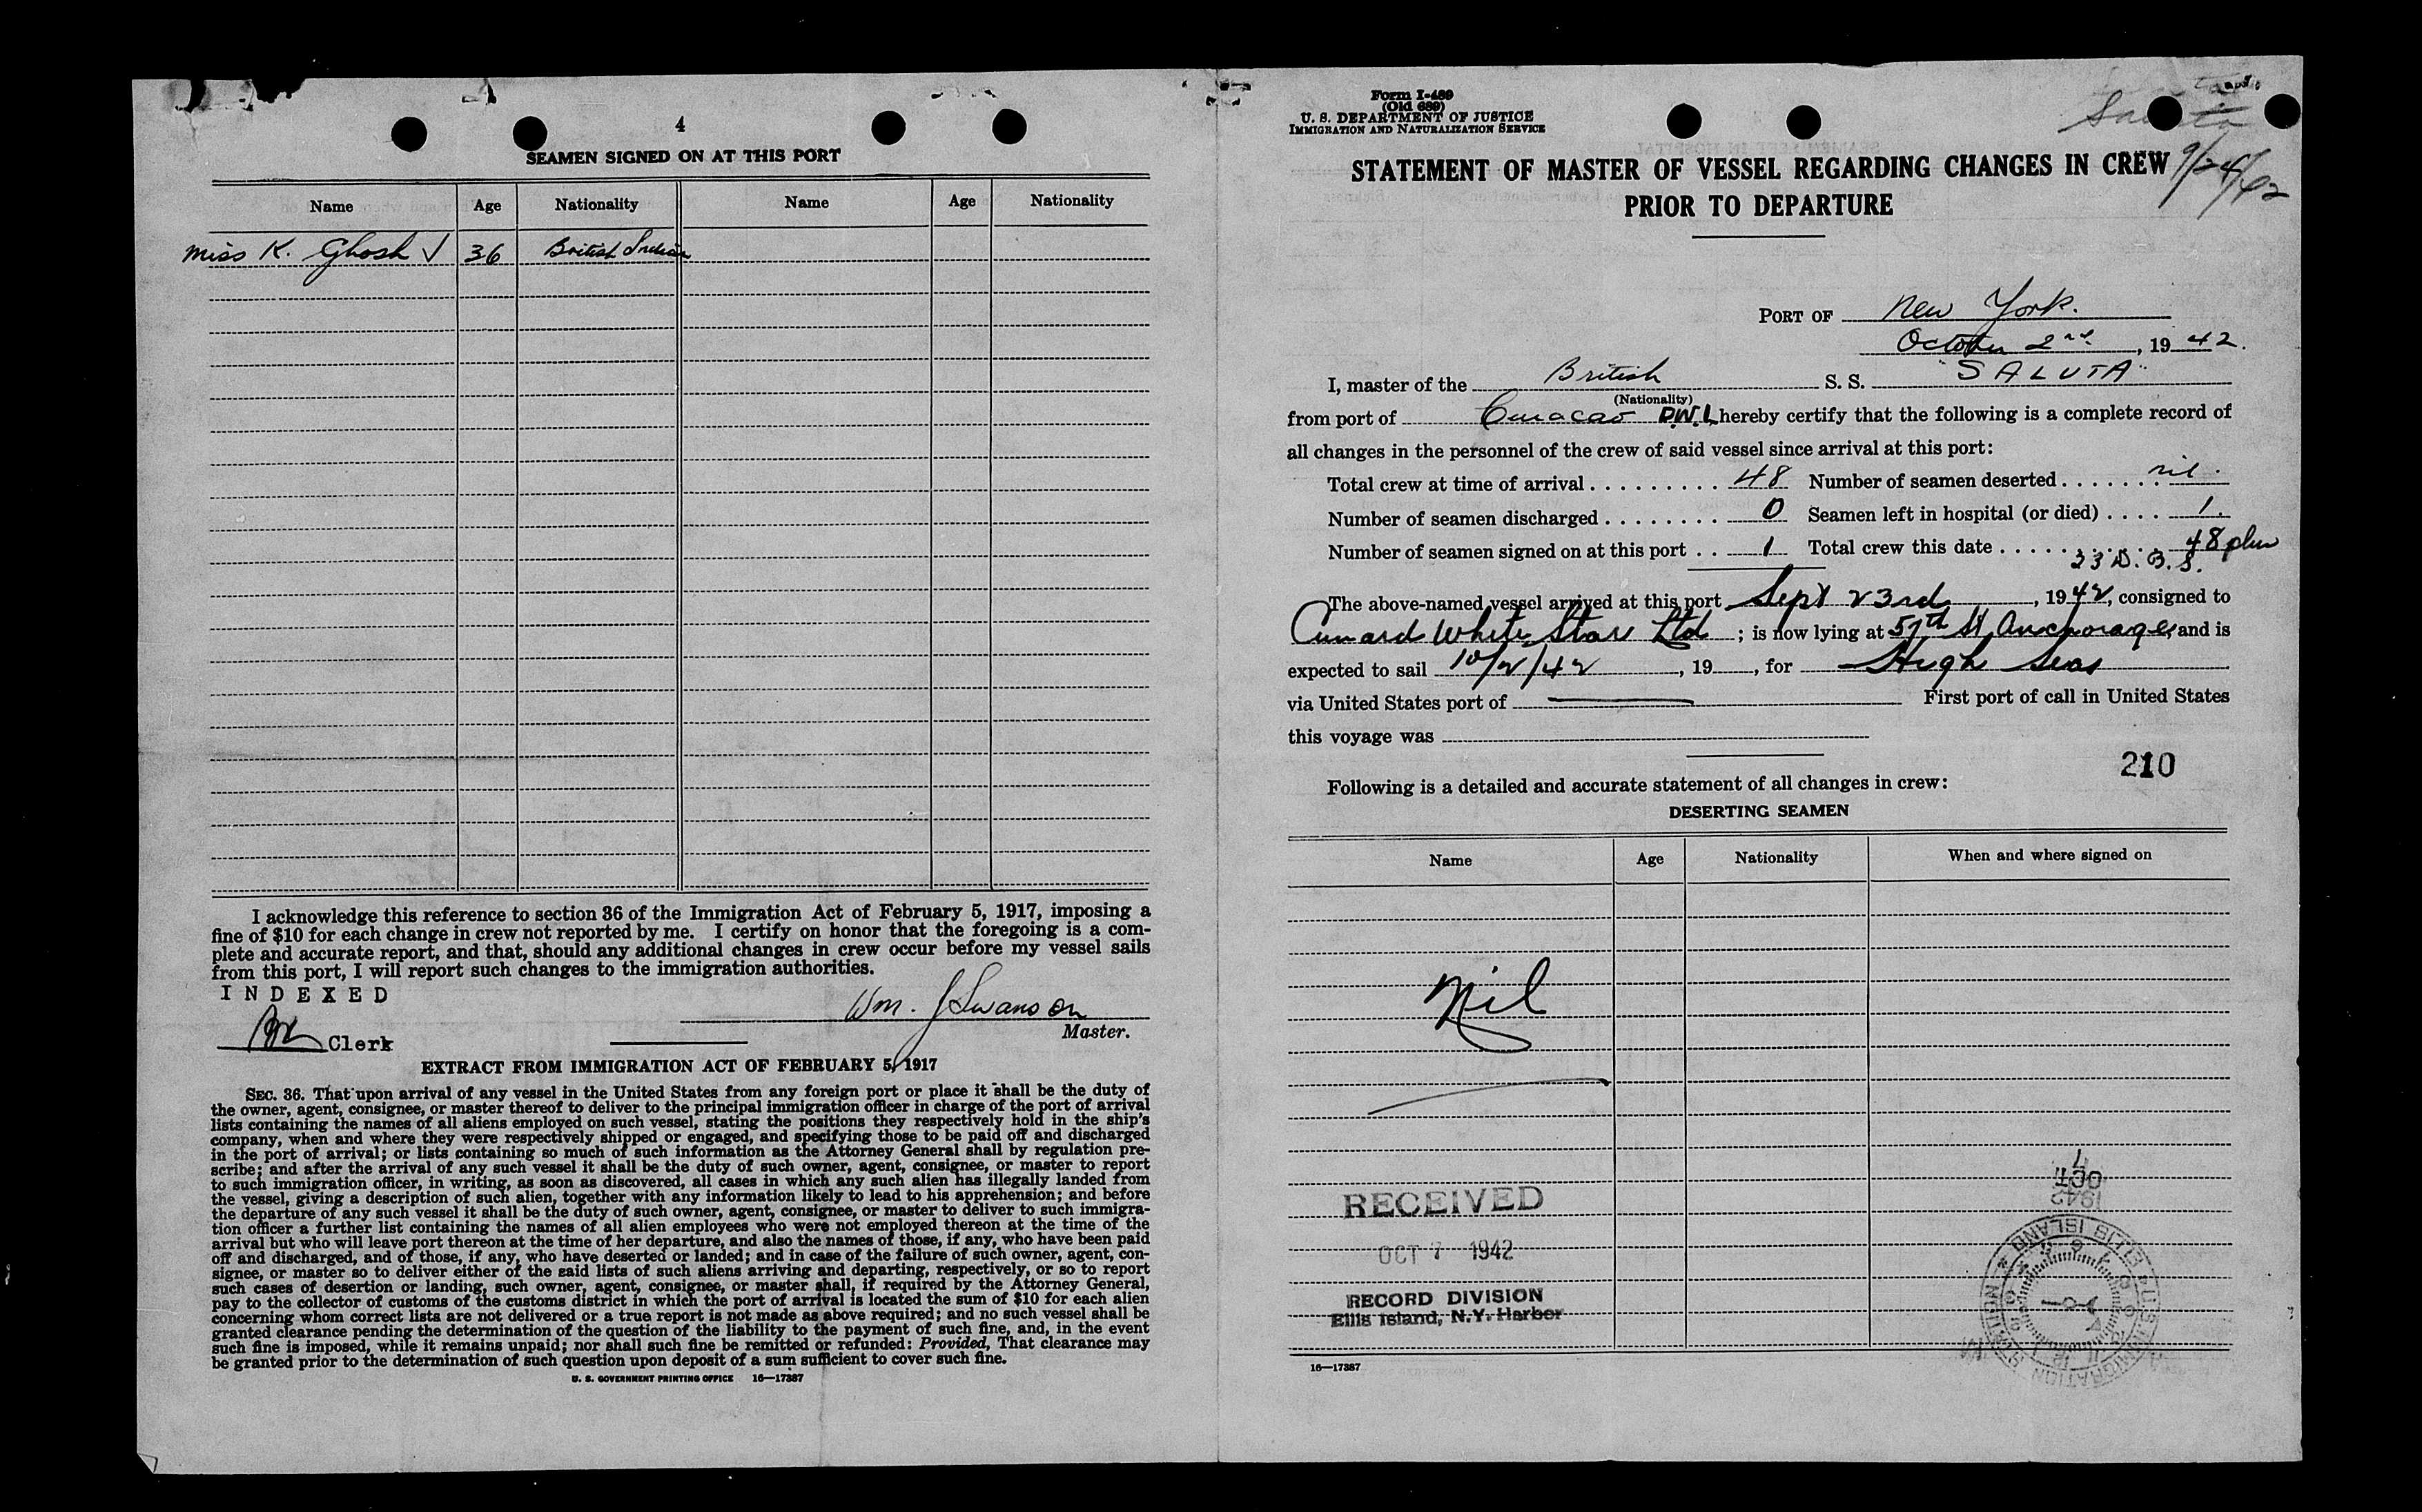 4
SEAMEN SIGNED ON AT THIS PORT
Name Age Nationality Name Age Nationality
Miss K. Ghosh √ 36 British Indian
I acknowledge this reference to section 36 of the Immigration Act of February 5, 1917, imposing a
fine of $10 for each change in crew not reported by me. I certify on honor that the foregoing is a com-
plete and accurate report, and that, should any additional changes in crew occur before my vessel sails
from this port, I will report such changes to the immigration authorities.
INDEXED
Wm. J Swanson
Clerk
Master.
EXTRACT FROM IMMIGRATION ACT OF FEBRUARY 5, 1917
SEC. 36. That upon arrival of any vessel in the United States from any foreign port or place it shall be the duty of
the owner, agent, consignee, or master thereof to deliver to the principal immigration officer in charge of the port of arrival
lists containing the names of all aliens employed on such vessel, stating the positions they respectively hold in the ship's
company, when and where they were respectively shipped or engaged, and specifying those to be paid off and discharged
in the port of arrival; or lists containing so much of such information as the Attorney General shall by regulation pre-
scribe; and after the arrival of any such vessel it shall be the duty of such owner, agent, consignee, or master to report
to such immigration officer, in writing, as soon as discovered, all cases in which any such alien has illegally landed from
the vessel, giving a description of such alien, together with any information likely to lead to his apprehension; and before
the departure of any such vessel it shall be the duty of such owner, agent, consignee, or master to deliver to such immigra-
tion officer a further list containing the names of all alien employees who were not employed thereon at the time of the
arrival but who will leave port thereon at the time of her departure, and also the names of those, if any, who have been paid
off and discharged, and of those, if any, who have deserted or landed; and in case of the failure of such owner, agent, con-
signee, or master so to deliver either of the said lists of such aliens arriving and departing, respectively, or so to report
such cases of desertion or landing, such owner, agent, consignee, or master shall, if required by the Attorney General,
pay to the collector of customs of the customs district in which the port of arrival is located the sum of $10 for each alien
concerning whom correct lists are not delivered or a true report is not made as above required; and no such vessel shall be
granted clearance pending the determination of the question of the liability to the payment of such fine, and, in the event
such fine is imposed, while it remains unpaid; nor shall such fine be remitted or refunded: Provided, That clearance may
be granted prior to the determination of such question upon deposit of a sum sufficient to cover such fine.
U. S. GOVERNMENT PRINTING OFFICE 16—17387
Form I-489
(Old 689)
U. S. DEPARTMENT OF JUSTICE
IMMIGRATION AND NATURALIZATION SERVICE
STATEMENT OF MASTER OF VESSEL REGARDING CHANGES IN CREW
9/24/42
PRIOR TO DEPARTURE
PORT OF New York.
October 2nd, 1942.
I, master of the British S. S. "SALUTA"
(Nationality)
from port of Curacao D.W.I. hereby certify that the following is a complete record of
all changes in the personnel of the crew of said vessel since arrival at this port:
Total crew at time of arrival . . . . . . . . . 48 Number of seamen deserted . . . . . . . nil.
Number of seamen discharged . . . . . . . . 0 Seamen left in hospital (or died) . . . . 1.
Number of seamen signed on at this port . . 1 Total crew this date . . . . . . . . . 48 plus
23 D. B. S.
The above-named vessel arrived at this port Sept 23rd, 1942, consigned to
Cunard White Star Ltd ; is now lying at 57th St, Anchorage, and is
expected to sail 10/2/42, 19 , for High Seas
via United States port of —— First port of call in United States
this voyage was
210
Following is a detailed and accurate statement of all changes in crew:
DESERTING SEAMEN
Name Age Nationality When and where signed on
Nil
RECEIVED
OCT 7 1942
RECORD DIVISION
Ellis Island, N.Y. Harbor
OCT 7
1942
16—17387